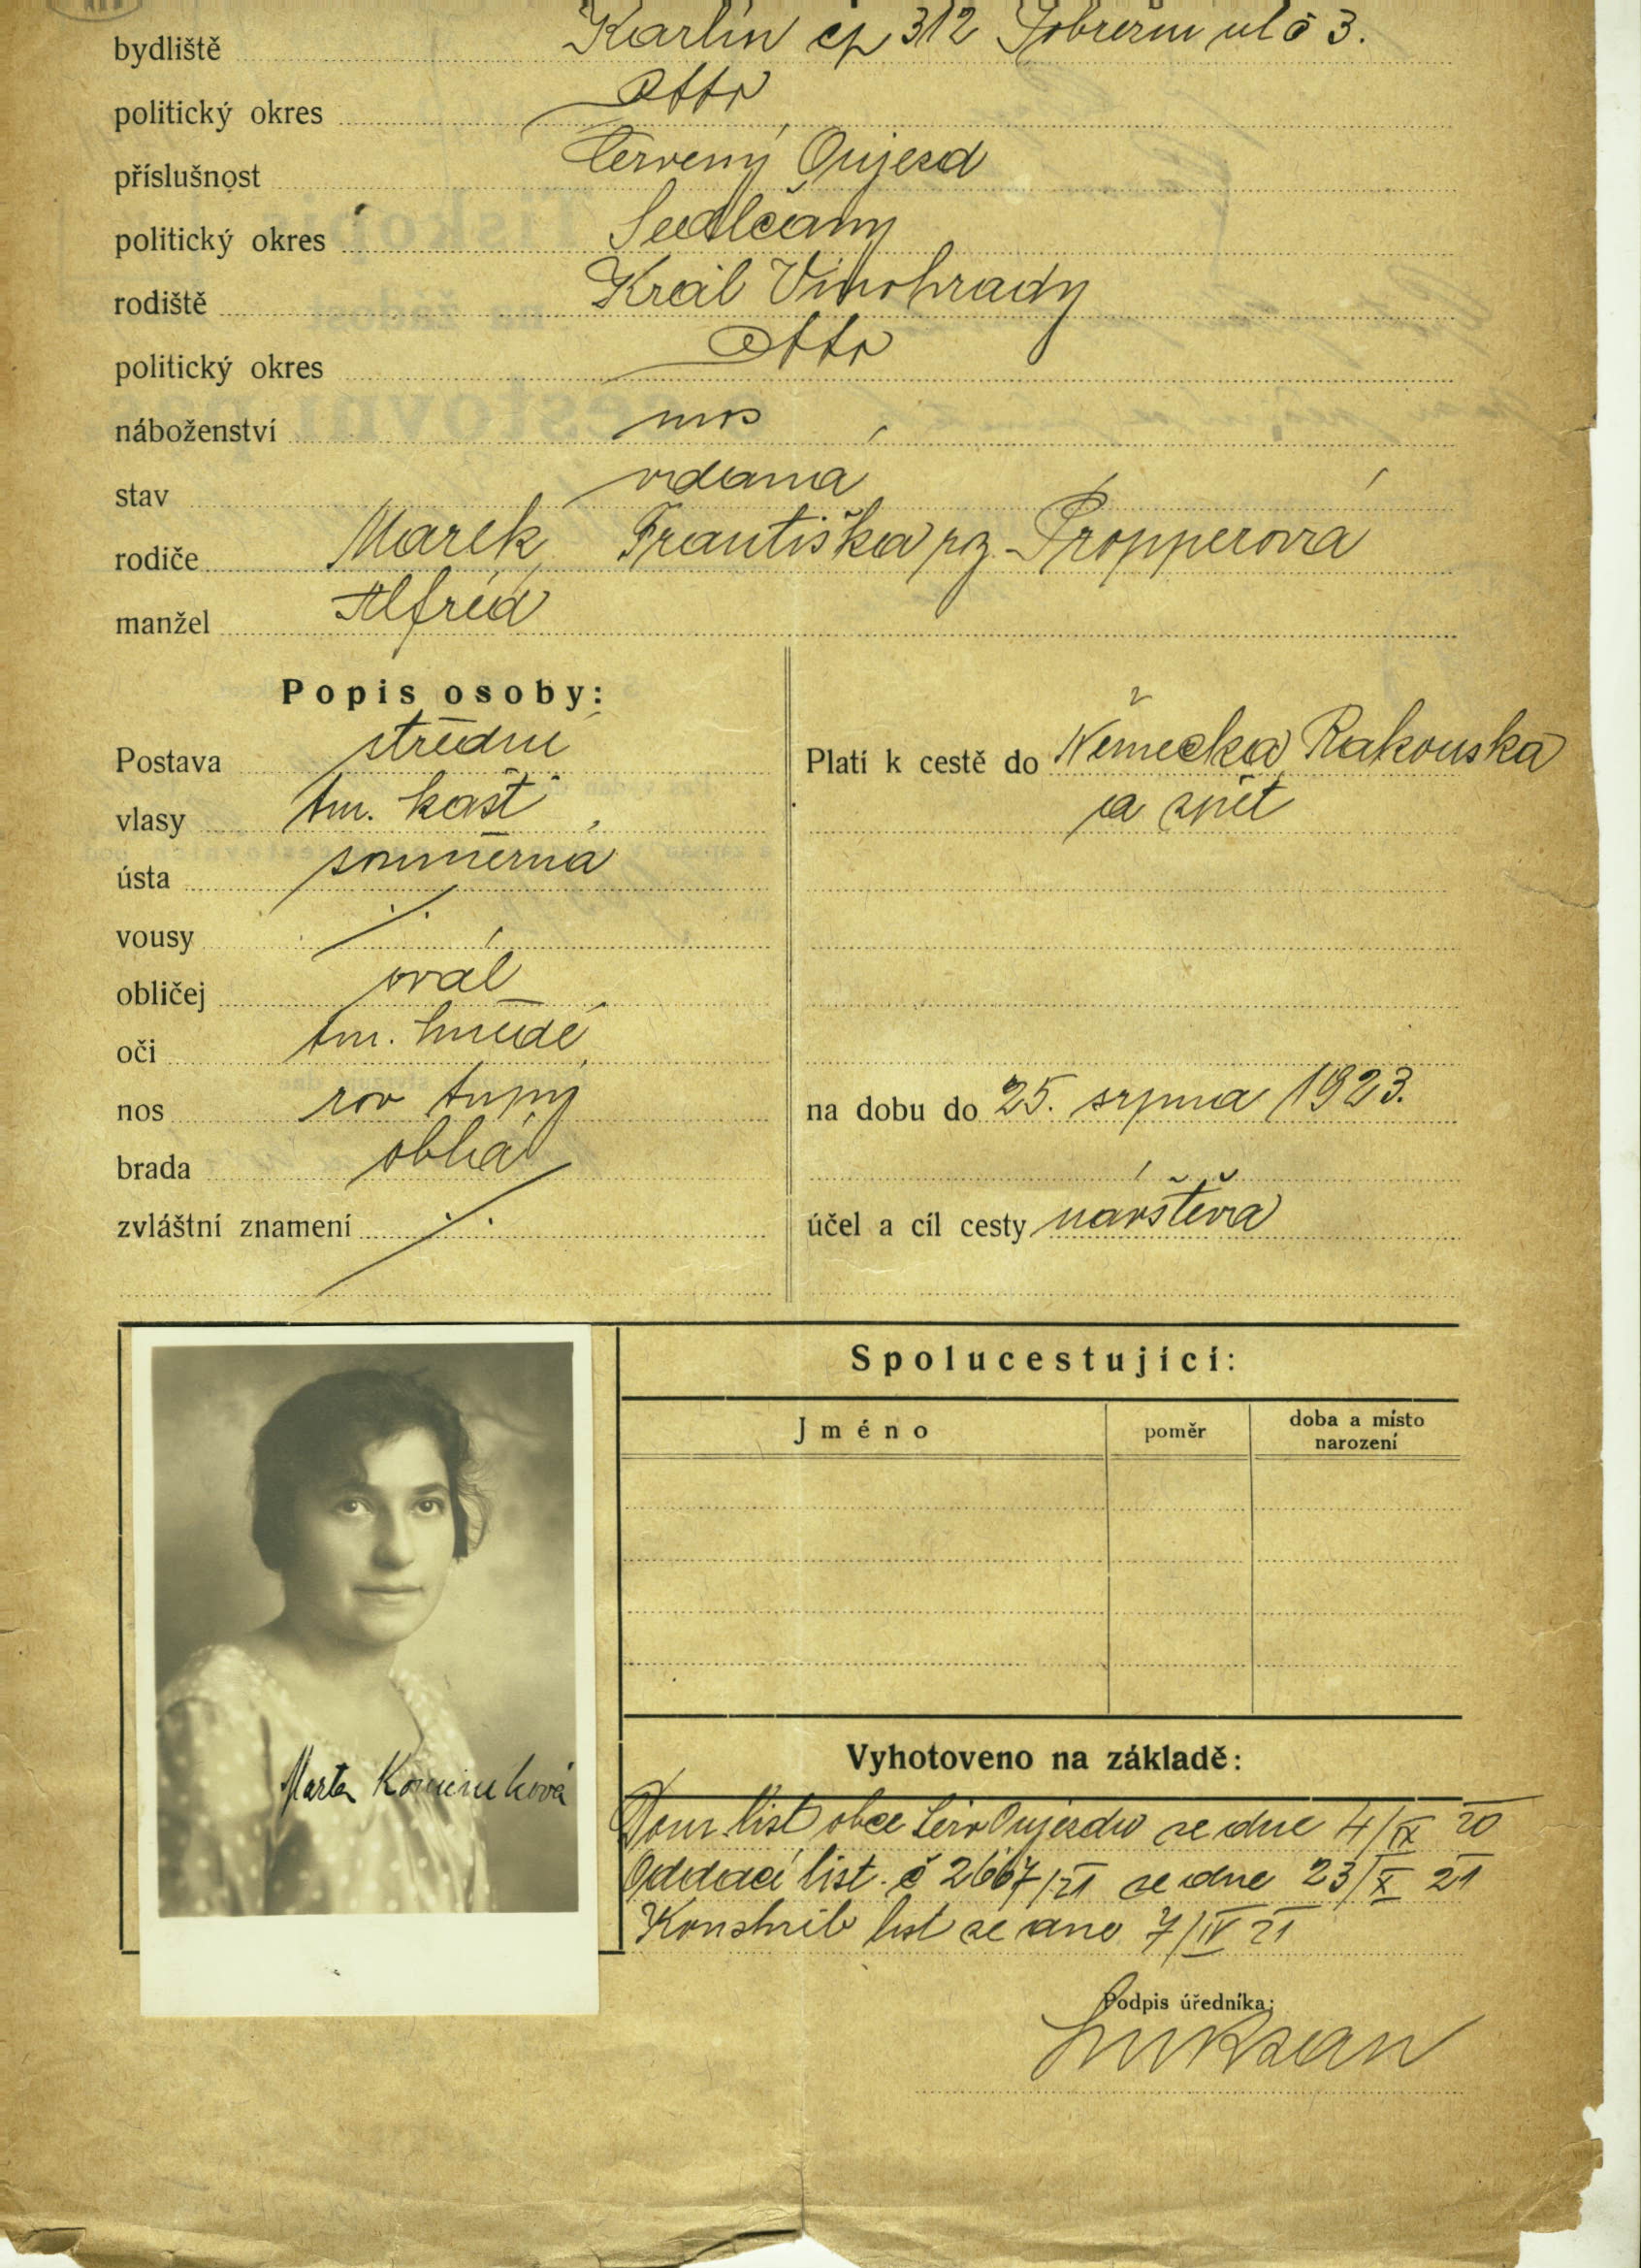 bydliště Karlín čp 312 ul č 3.
politický okres detto
příslušnost Červený Oujezd
politický okres Sedlčany
rodiště Král Vinohrady
politický okres detto
náboženství mos
stav vdaná
rodiče Marek, Františka rz. Propperová
manžel Alfréd
Popis osoby:
Postava střední
vlasy tm. kašt
ústa souměrná
vousy ./.
obličej ovál
oči tm. hnědé
nos rov tupý
brada oblá
zvláštní znamení ./.
Platí k cestě do Německa Rakouska
a zpět
na dobu do 25. srpna 1923.
účel a cíl cesty návštěva
Spolucestující:
Jméno
poměr
doba a místo
narození
Marta
Vyhotoveno na základě:
Dom. list obce Červ Oujezdu ze dne 4/IX 20
Oddací list. č 2667/21 ze dne 23/X 21
list ze dne 7/IV 21
Podpis úředníka: